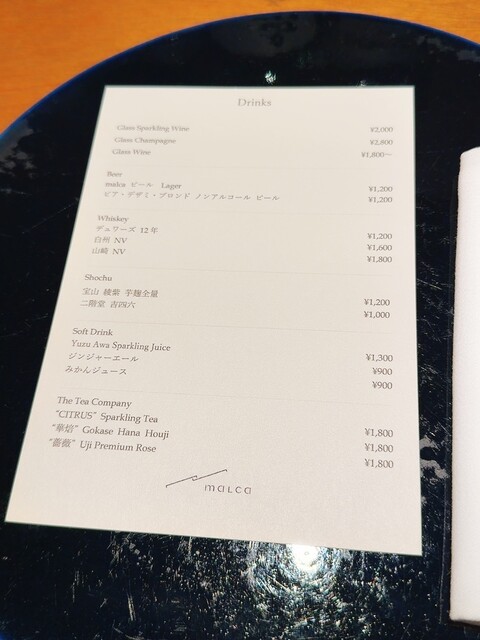 Drinks
Glass Sparkling Wine ¥2,000
Glass Champagne ¥2,800
Glass Wine ¥1,800~
Beer
malca ビール Lager ¥1,200
ピア・デザミ・ブロンド ノンアルコール ビール ¥1,200
Whiskey
デュワーズ 12年 ¥1,200
白州 NV ¥1,600
山崎 NV ¥1,800
Shochu
宝山 綾紫 芋麹全量 ¥1,200
二階堂 吉四六 ¥1,000
Soft Drink
Yuzu Awa Sparkling Juice ¥1,300
ジンジャーエール ¥900
みかんジュース ¥900
The Tea Company
"CITRUS" Sparkling Tea ¥1,800
"華焙" Gokase Hana Houji ¥1,800
"薔薇" Uji Premium Rose ¥1,800
malca